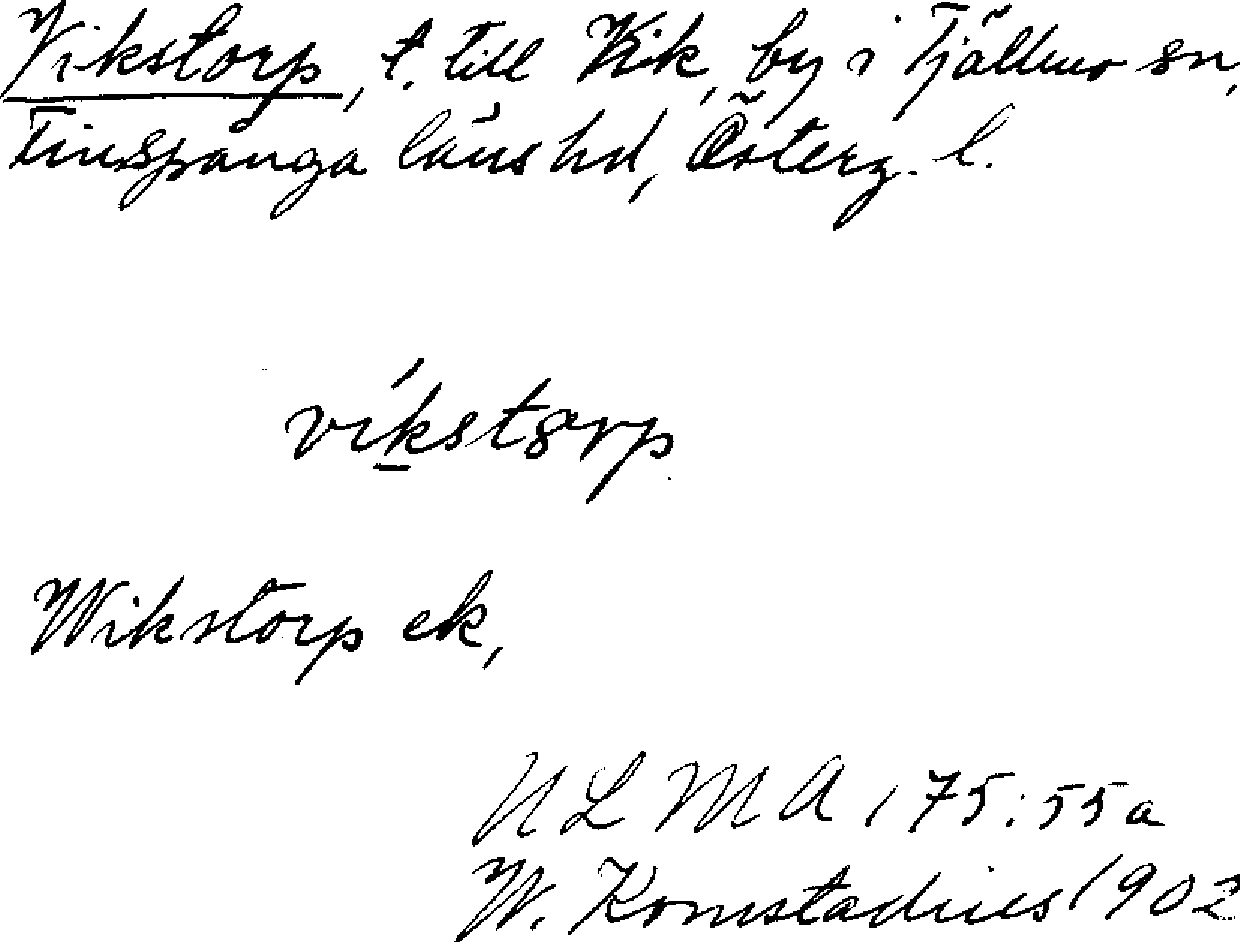 Vikstorp, t. till Vik, by i Tjällmo sn,
Finspånga läns hd, Österg. l.
víkstorp
Wikstorp ek,
ULMA 175:55a
W. Kornstadius 1902